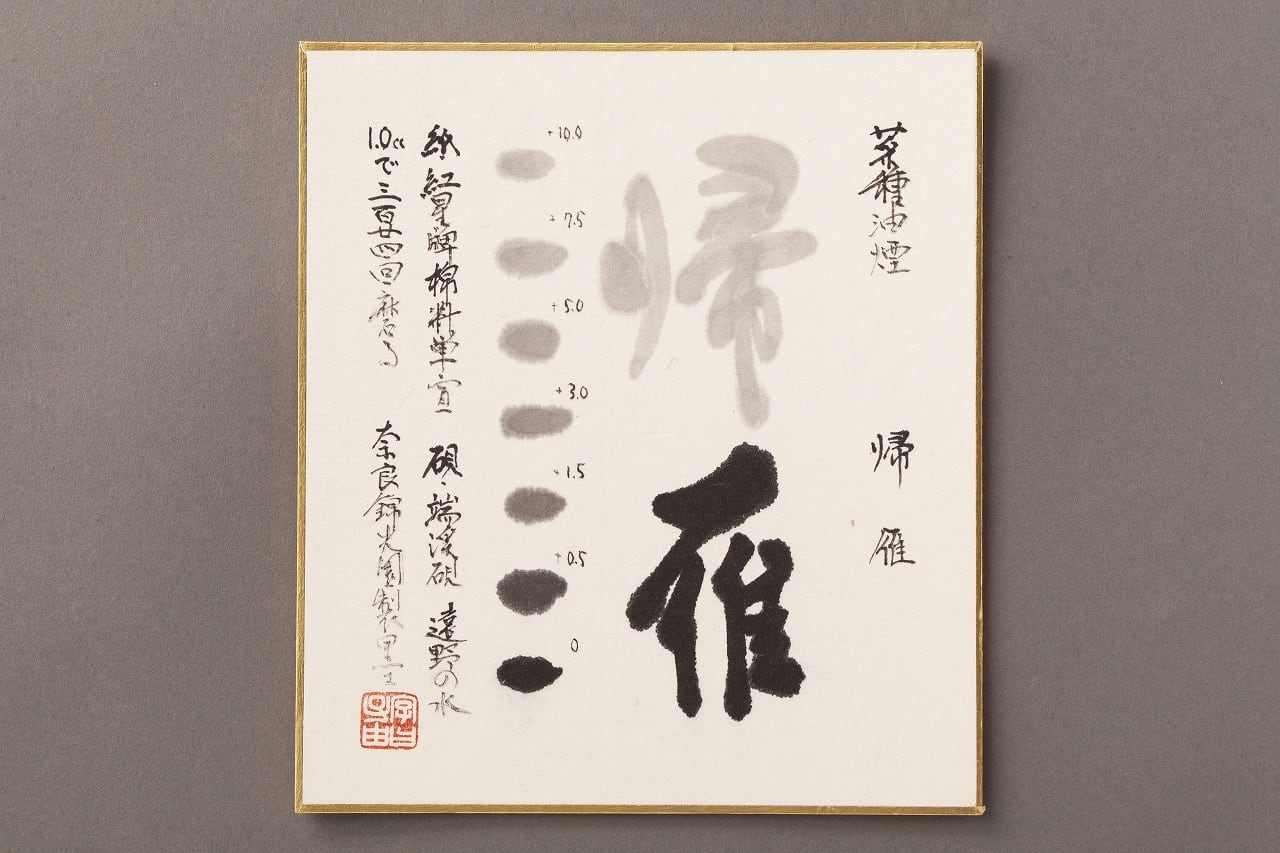 菜種油煙 帰雁
帰雁
+10.0
+7.5
+5.0
+3.0
+1.5
+0.5
0
紙 紅星牌棉料単宣 硯・端渓硯 遠野の水
1.0ccで三百廿四回磨る 奈良錦光園製墨